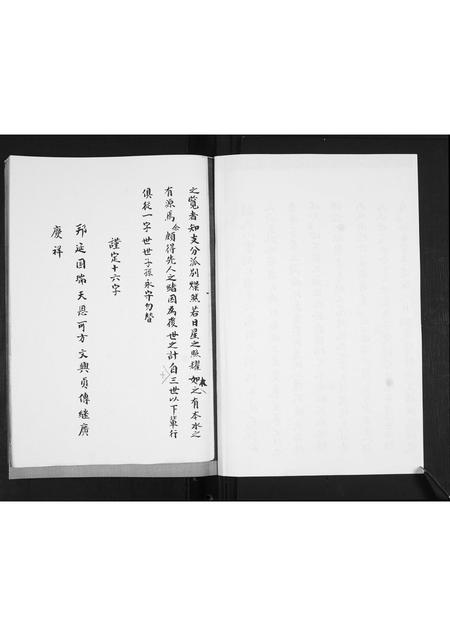 之覽者知支分派別燦然若日星之照耀如木之有本水之
有源焉念頗得先人之緒因為後世之計自三世以下輩行
俱從一字世世子孫永守勿替
謹定十六字
邦延国瑞天恩可方文興貞傳継廣
慶祥